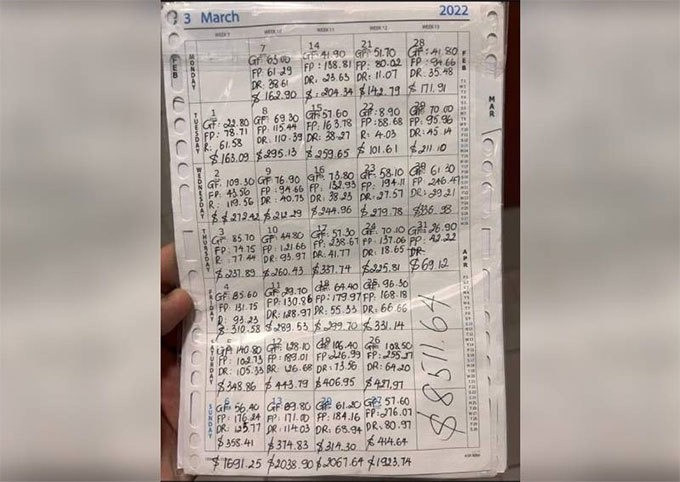 3 March 2022
WEEK 9 WEEK 10 WEEK 11 WEEK 12 WEEK 13
FEB
MONDAY
7
GF: 63.00
FP: 61.29
DR: 38.61
$ 162.90
14
GF: 41.90
FP: 138.81
DR: 23.63
$ 204.34
21
GF: 51.70
FP: 80.02
DR: 11.07
$ 142.79
28
GF: 41.80
FP: 94.66
DR: 35.48
$ 171.91
TUESDAY
1
GF: 22.80
FP: 78.71
R: 61.58
$ 163.09
8
GF: 69.30
FP: 115.44
DR: 110.39
$ 295.13
15
GF: 57.60
FP: 163.78
DR: 38.27
$ 259.65
22
GF: 8.90
FP: 88.68
R: 4.03
$ 101.61
29
GF: 70.00
FP: 95.96
DR: 45.14
$ 211.10
WEDNESDAY
2
GF: 109.30
FP: 43.56
R: 119.56
$ 272.42
9
GF: 76.90
FP: 94.66
DR: 40.73
$ 212.29
16
GF: 73.80
FP: 132.93
DR: 38.23
$ 244.96
23
GF: 58.10
FP: 194.11
DR: 27.57
$ 279.78
30
GF: 61.30
FP: 246.47
DR: 29.21
$ 336.98
THURSDAY
3
GF: 85.70
FP: 74.75
R: 77.44
$ 237.89
10
GF: 44.80
FP: 121.66
DR: 93.97
$ 260.43
17
GF: 57.30
FP: 238.67
DR: 41.77
$ 337.74
24
GF: 70.10
FP: 137.06
DR: 18.65
$ 225.81
31
GF: 26.90
FP: 42.22
DR
$ 69.12
FRIDAY
4
GF: 85.60
FP: 131.75
DR: 93.23
$ 310.58
11
GF: 29.70
FP: 130.86
DR: 128.97
$ 289.53
18
GF: 64.40
FP: 179.97
DR: 55.33
$ 299.70
25
GF: 96.30
FP: 168.18
DR: 66.66
$ 331.14
SATURDAY
5
GF: 140.80
FP: 102.73
DR: 105.33
$ 348.86
12
GF: 128.10
FP: 189.01
DR: 126.68
$ 443.79
19
GF: 106.40
FP: 226.99
DR: 73.56
$ 406.95
26
GF: 108.50
FP: 255.27
DR: 64.20
$ 427.97
SUNDAY
6
GF: 56.40
FP: 176.24
DR: 125.77
$ 358.41
13
GF: 89.80
FP: 171.00
DR: 114.03
$ 374.83
20
GF: 61.20
FP: 184.16
DR: 68.94
$ 314.30
27
GF: 57.60
FP: 276.07
DR: 80.97
$ 414.64
$ 1691.25 $ 2038.90 $ 2067.64 $ 1923.74
$ 8511.64
FEB
MAR
APR